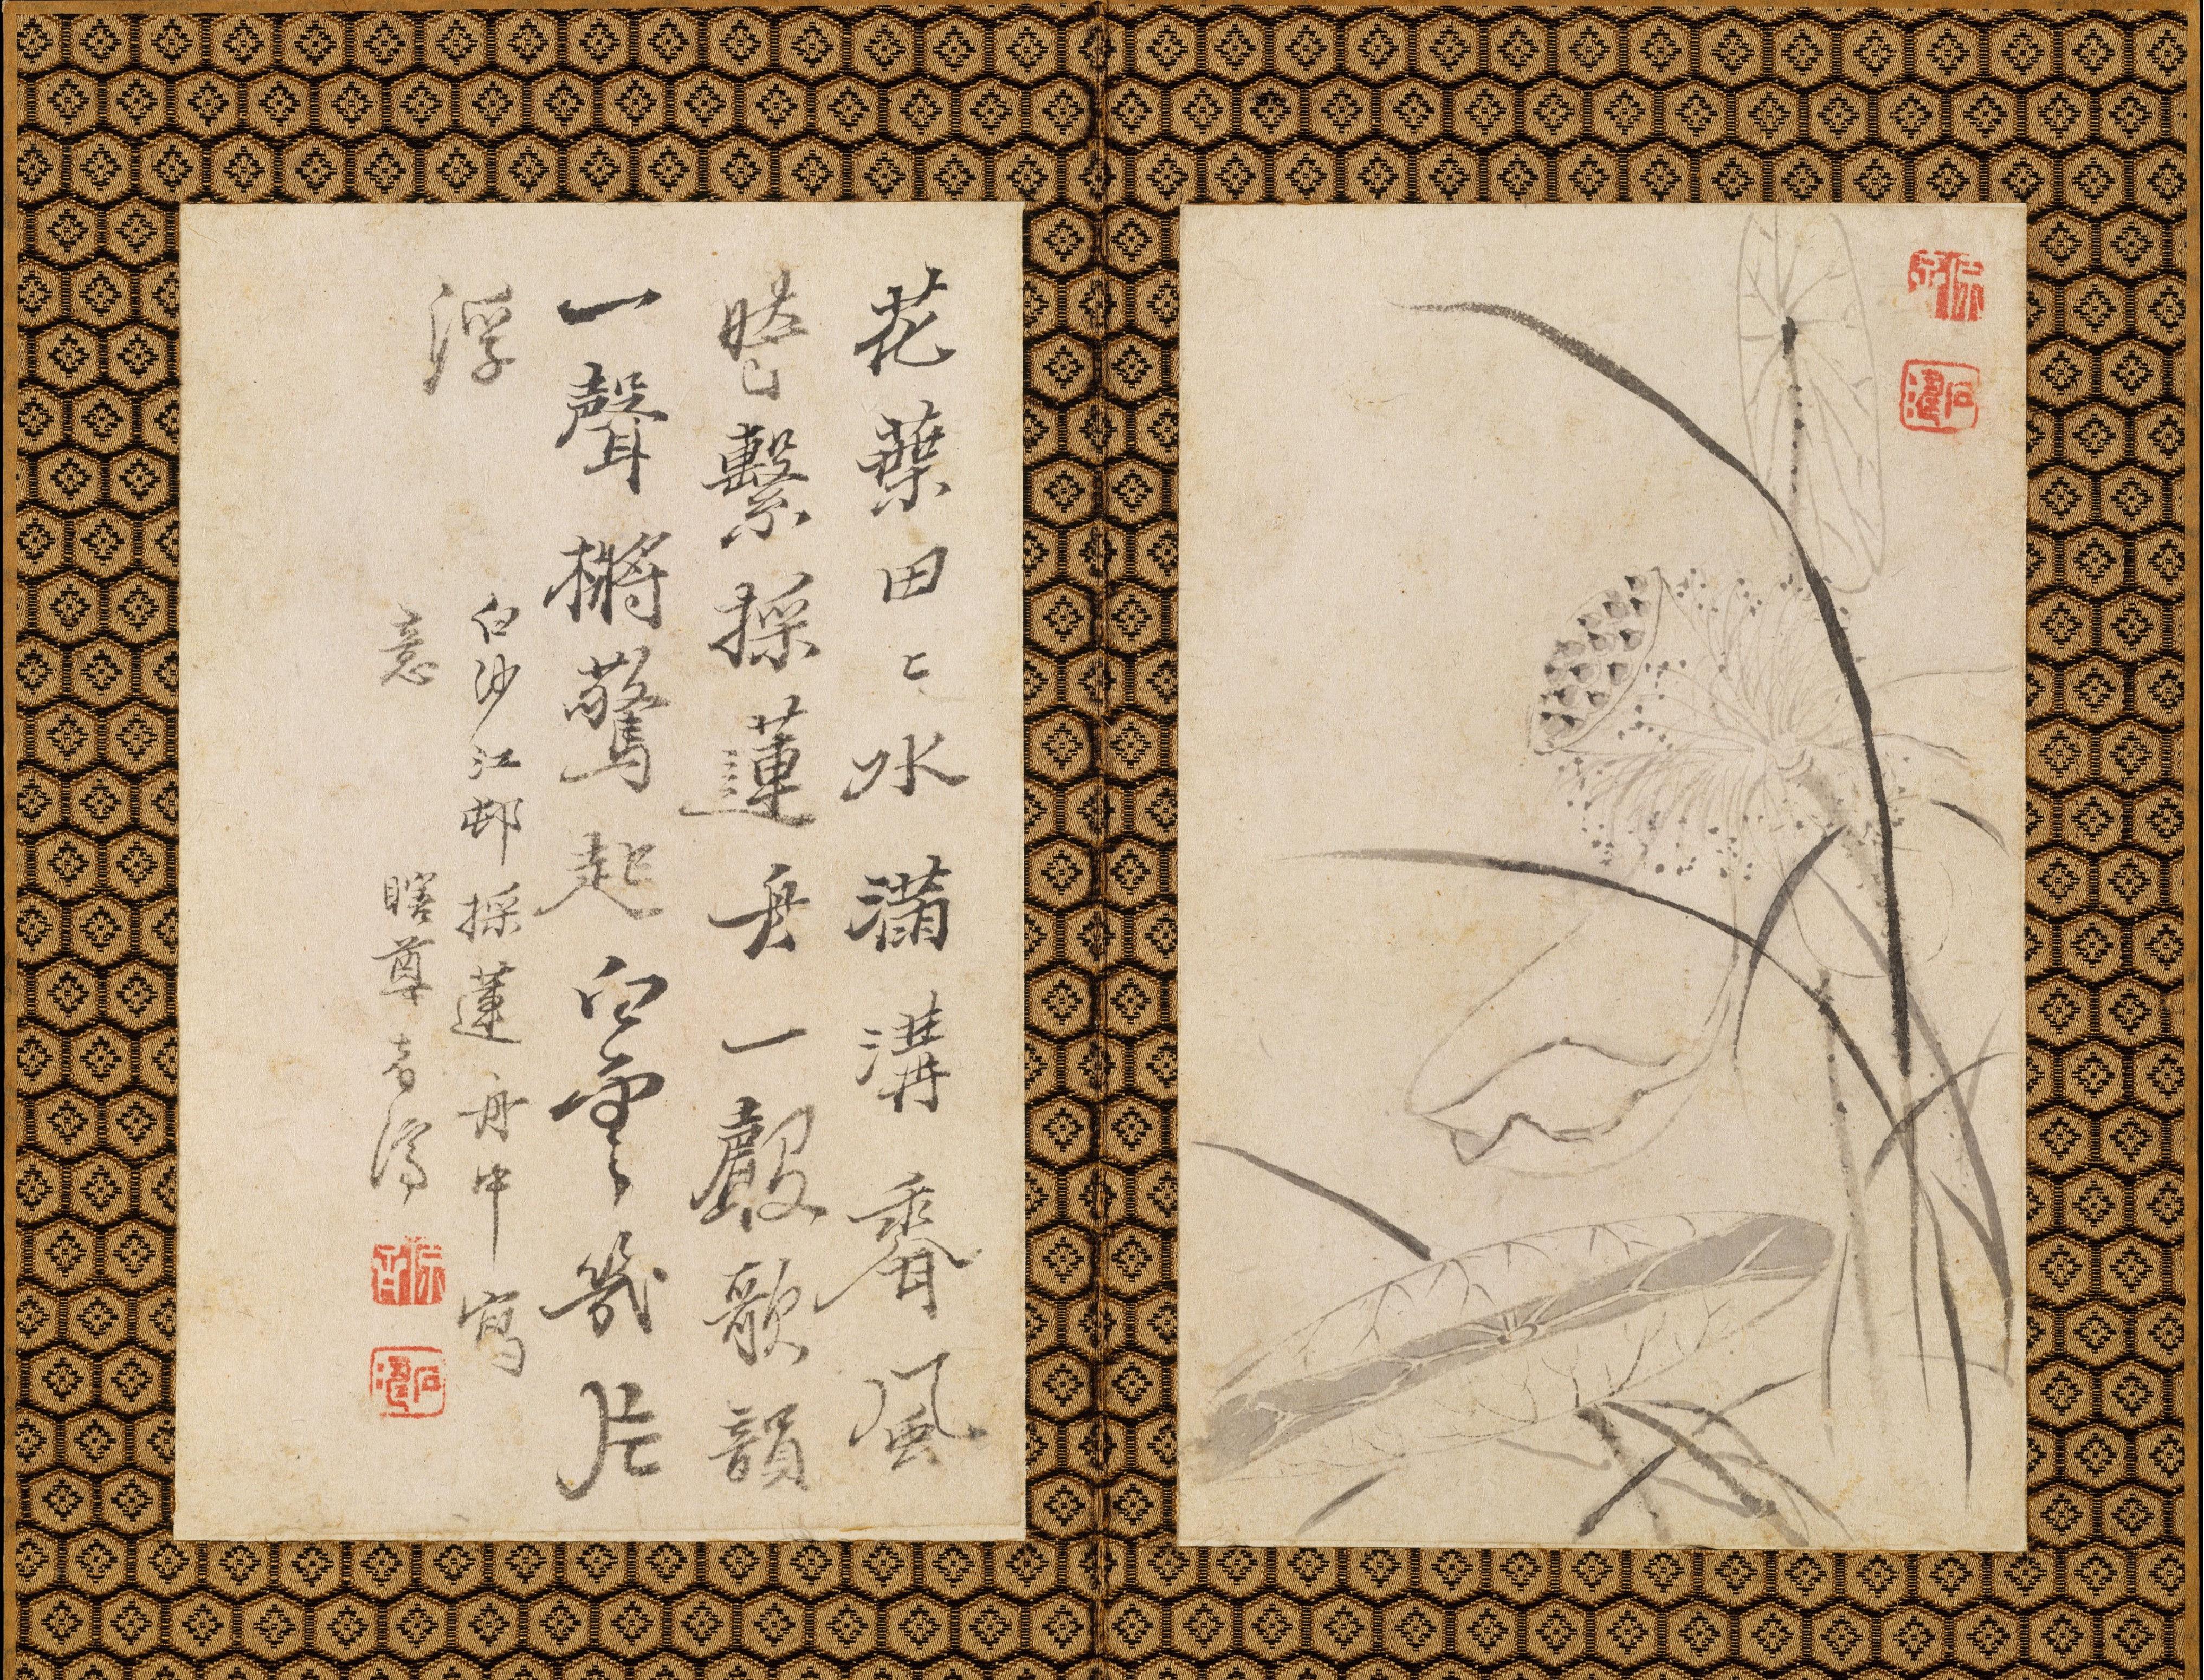 石濤
花葉田〻水滿溝香風
繫採蓮舟一聲歌韻
一聲槳驚起白雲幾片
浮
白沙江邨採蓮舟中寫
意 瞎尊者濟
石濤